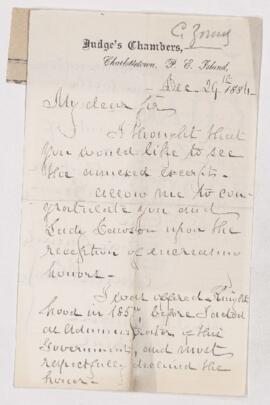 C Young
Judge's Chambers,
Charlottetown, P. E. Island,
Dec. 29th 1884
My dear Sir
I thought that
you would like to see
the annexed excerpts.
allow me to con-
gratulate you and
Lady Dawson upon the
reception of increasing
honors.
I was offered Knight
hood in 185 before I acted
as Administrator of this
Government, and most
respectfully declined the
honor.